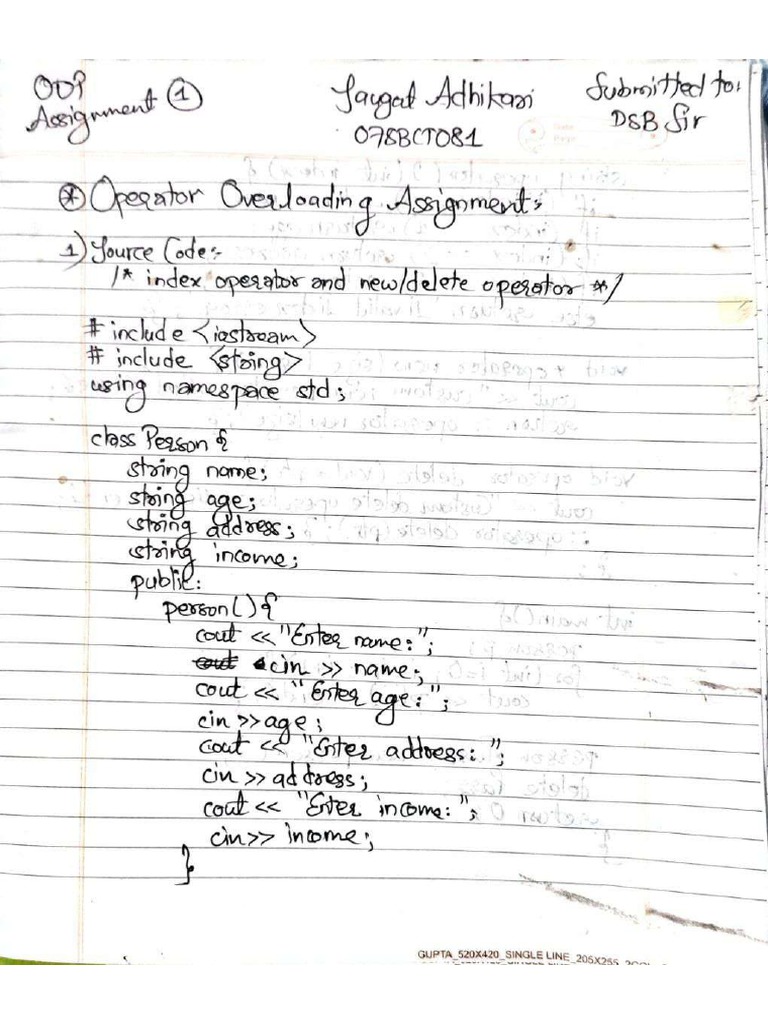 OOP
Assignment ①
Jaygat Adhikari
078BCT081
Submitted to:
DSB Sir
⊛ Operator Overloading Assignment:
1) Source Code:-
/* index operator and new/delete operator */
# include <iostream>
# include <string>
using namespace std;
class Person {
string name;
string age;
string address;
string income;
public:
person() {
cout << "Enter name:";
cin >> name;
cout << "Enter age:";
cin >> age;
cout << "Enter address:";
cin >> address;
cout << "Enter income:";
cin >> income;
}
GUPTA_520X420_SINGLE LINE_205X255